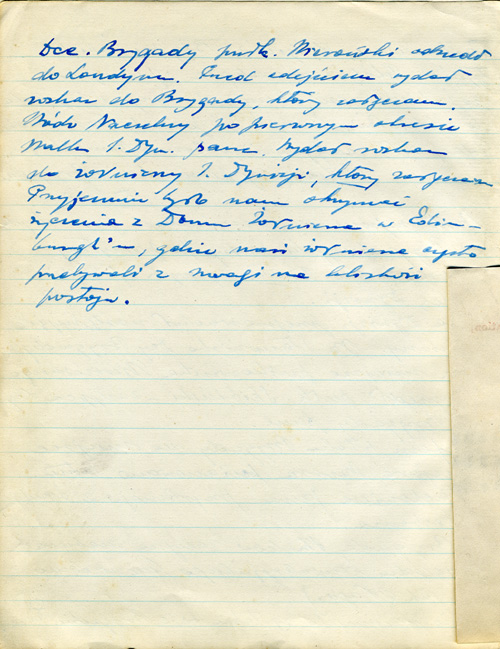 Dca. Brygady ppłk. odszedł
do Londynu. Przed odejściem wydał
rozkaz do Brygady, który załączam.
Wódz Naczelny po pierwszym okresie
walk 1. Dyw. panc. wydał rozkaz
do żołnierzy 1. Dywizji, który załączam
Przyjemnie było nam otrzymać
życzenia z Domu Żołnierza w Edin-
burgh'u, gdzie nasi żołnierze często
przebywali z uwagi na bliskość
postoju.